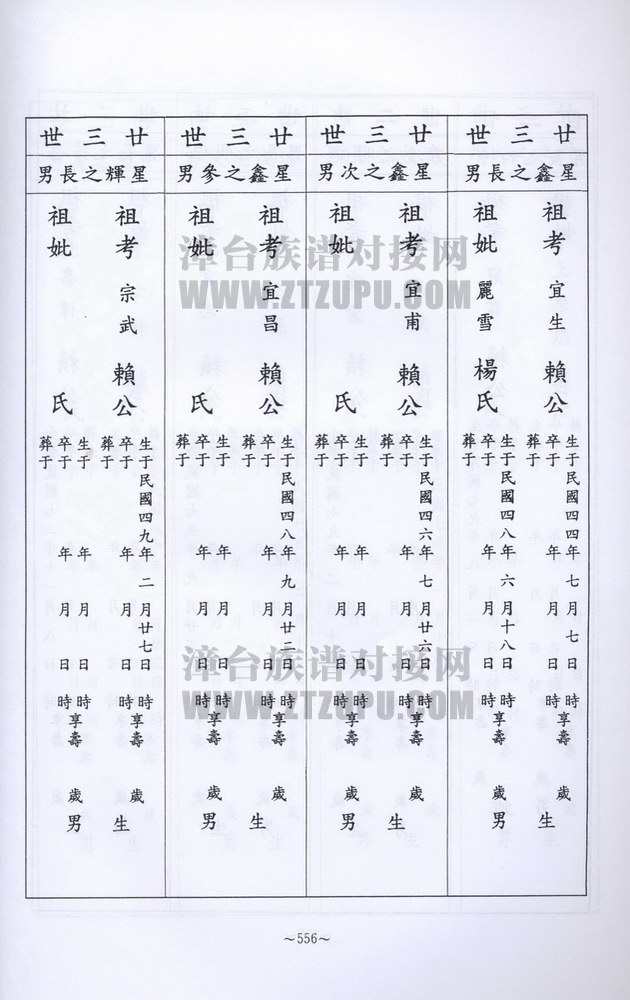 廿三世
星鑫之長男
祖考 宜生 賴公
生于民國四四年七月七日 時享壽 歲
卒于 年 月 日 時
葬于
祖妣 麗雪 楊氏
生于民國四八年六月十八日 時享壽 歲
卒于 年 月 日 時
葬于
生 男
廿三世
星鑫之次男
祖考 宜甫 賴公
生于民國四六年七月廿六日 時享壽 歲
卒于 年 月 日 時
葬于
祖妣 氏
生于 年 月 日 時享壽 歲
卒于 年 月 日 時
葬于
生 男
廿三世
星鑫之參男
祖考 宜昌 賴公
生于民國四八年九月廿二日 時享壽 歲
卒于 年 月 日 時
葬于
祖妣 氏
生于 年 月 日 時享壽 歲
卒于 年 月 日 時
葬于
生 男
廿三世
星輝之長男
祖考 宗武 賴公
生于民國四九年二月廿七日 時享壽 歲
卒于 年 月 日 時
葬于
祖妣 氏
生于 年 月 日 時享壽 歲
卒于 年 月 日 時
葬于
生 男
漳台族谱对接网
WWW.ZTZUPU.COM
漳台族谱对接网
WWW.ZTZUPU.COM
～556～